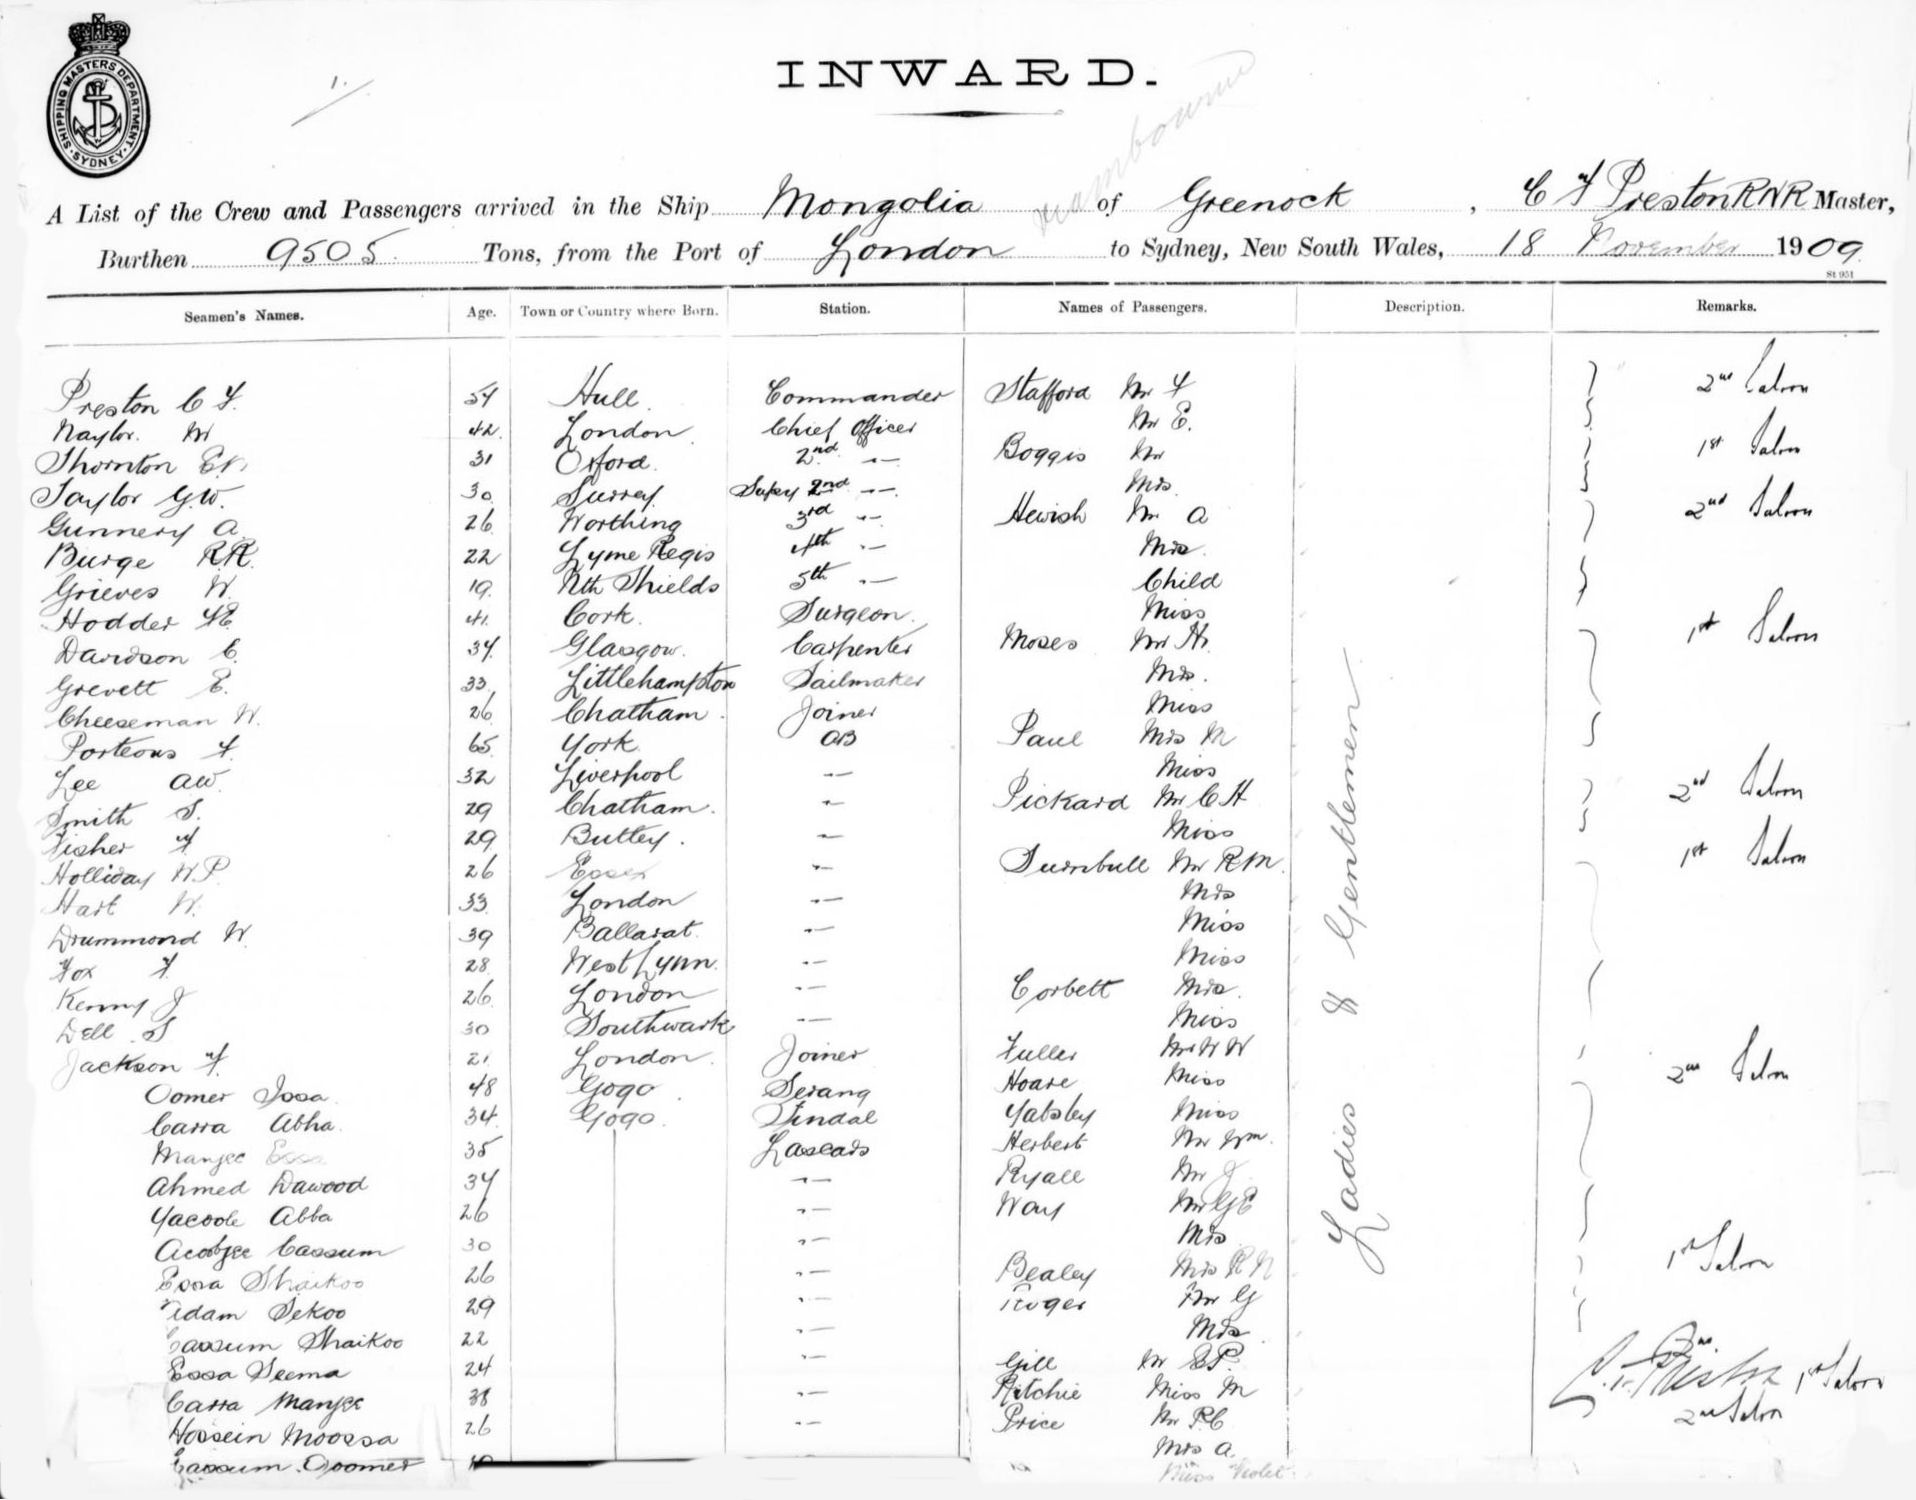 SHIPPING MASTERS DEPARTMENT
SYDNEY
1.
INWARD.
A List of the Crew and Passengers arrived in the Ship Mongolia of Greenock, C F Preston RNR Master,
Burthen 9505 Tons, from the Port of London to Sydney, New South Wales, 18 November 1909
St 951
Seamen's Names. Age. Town or Country where Born. Station. Names of Passengers. Description. Remarks.
Preston C F. 54 Hull. Commander Stafford Mr F 2nd Saloon
Naylor. W 42 London Chief Officer Mr E.
Thornton 31 Oxford. 2nd " Boggis Mr 1st Saloon
Taylor G.W. 30 Surrey 2nd " Mrs.
Gunnery A. 26 Worthing 3rd " Hewish Mr A 2nd Saloon
Burge R.R. 22 Lyme Regis 4th " Mrs.
Grieves W. 19. Nth Shields 5th " Child
Hodder 41. Cork. Surgeon. Miss
Davidson C. 34 Glasgow. Carpenter Moses Mr H. 1st Saloon
Grevett E. 33 Littlehampton Sailmaker Mrs.
Cheeseman W. 26 Chatham. Joiner Miss
Porteous F. 65 York. AB Paul Mrs M
Lee AW. 32 Liverpool " Miss
Smith S. 29 Chatham. " Pickard Mr C H 2nd Saloon
Fisher F 29 Butley. " Miss
Holliday W.P. 26 Essex " Turnbull Mr R M. 1st Saloon
Hart W. 33 London " Mrs
Drummond W. 39 Ballarat. " Miss
Fox F. 28 West Lynn. " Miss
Kenny J 26 London " Corbett Mrs.
Dell S 30 Southwark " Miss
Jackson F. 21 London. Joiner Fuller W W
Oomer Issa. 48 Gogo. Serang Hoare Miss 2nd Saloon
Carra Abha. 34 Gogo. Tindal Yabsley Miss
Manjee Essa 35 Lascars Herbert Mr Wm.
Ahmed Dawood 34 " Ryall Mr J
Yacoob Abba 26 " Way Mr G E
Cassum 30 " Mrs
Essa Shaikoo 26 " Bealey Mrs R N 1st Saloon
Adam Sekoo 29 " Mr G
Cassum Shaikoo 22 " Mrs
Essa Seema 24 " Gill Mr
Carra Manjee 38 " Ritchie Miss M 1st Saloon
Hossein Moossa 26 " Price Mr R C 2nd Saloon
Cassum Oomer Mrs A.
Miss Violet
Ladies & Gentlemen